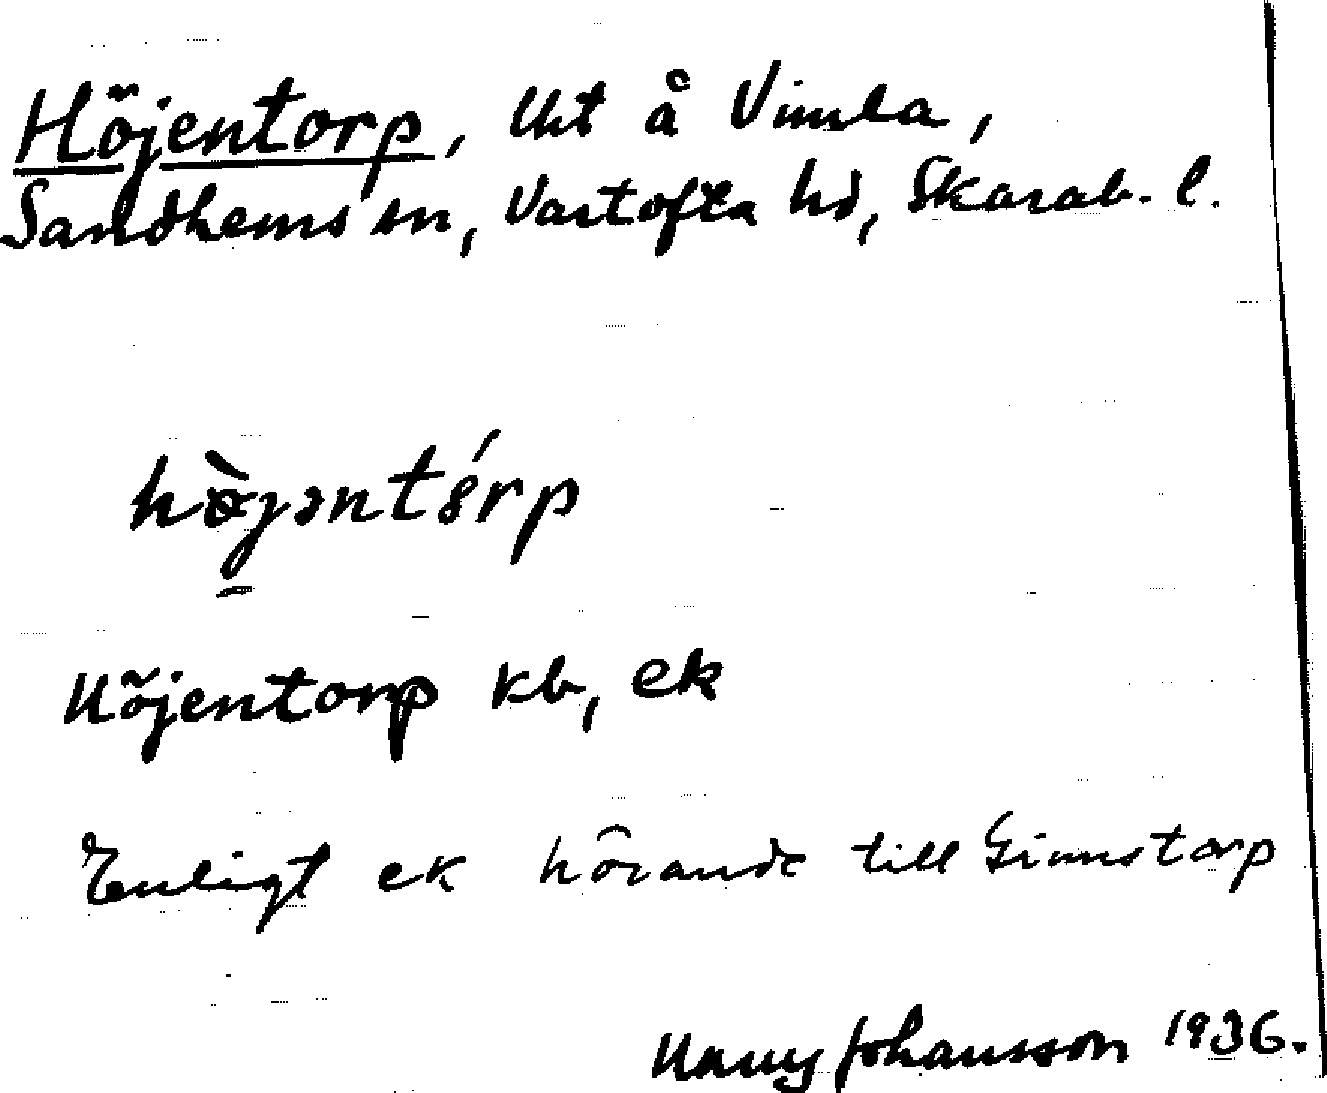 Höjentorp, Uht å Vimla,
Sandhems sn, Vartofta hd, Skarab. l.
hòjəntórp
Höjentorp kb, ek
Enligt ek hörande till Simnstorp
Harry Johansson 1936.